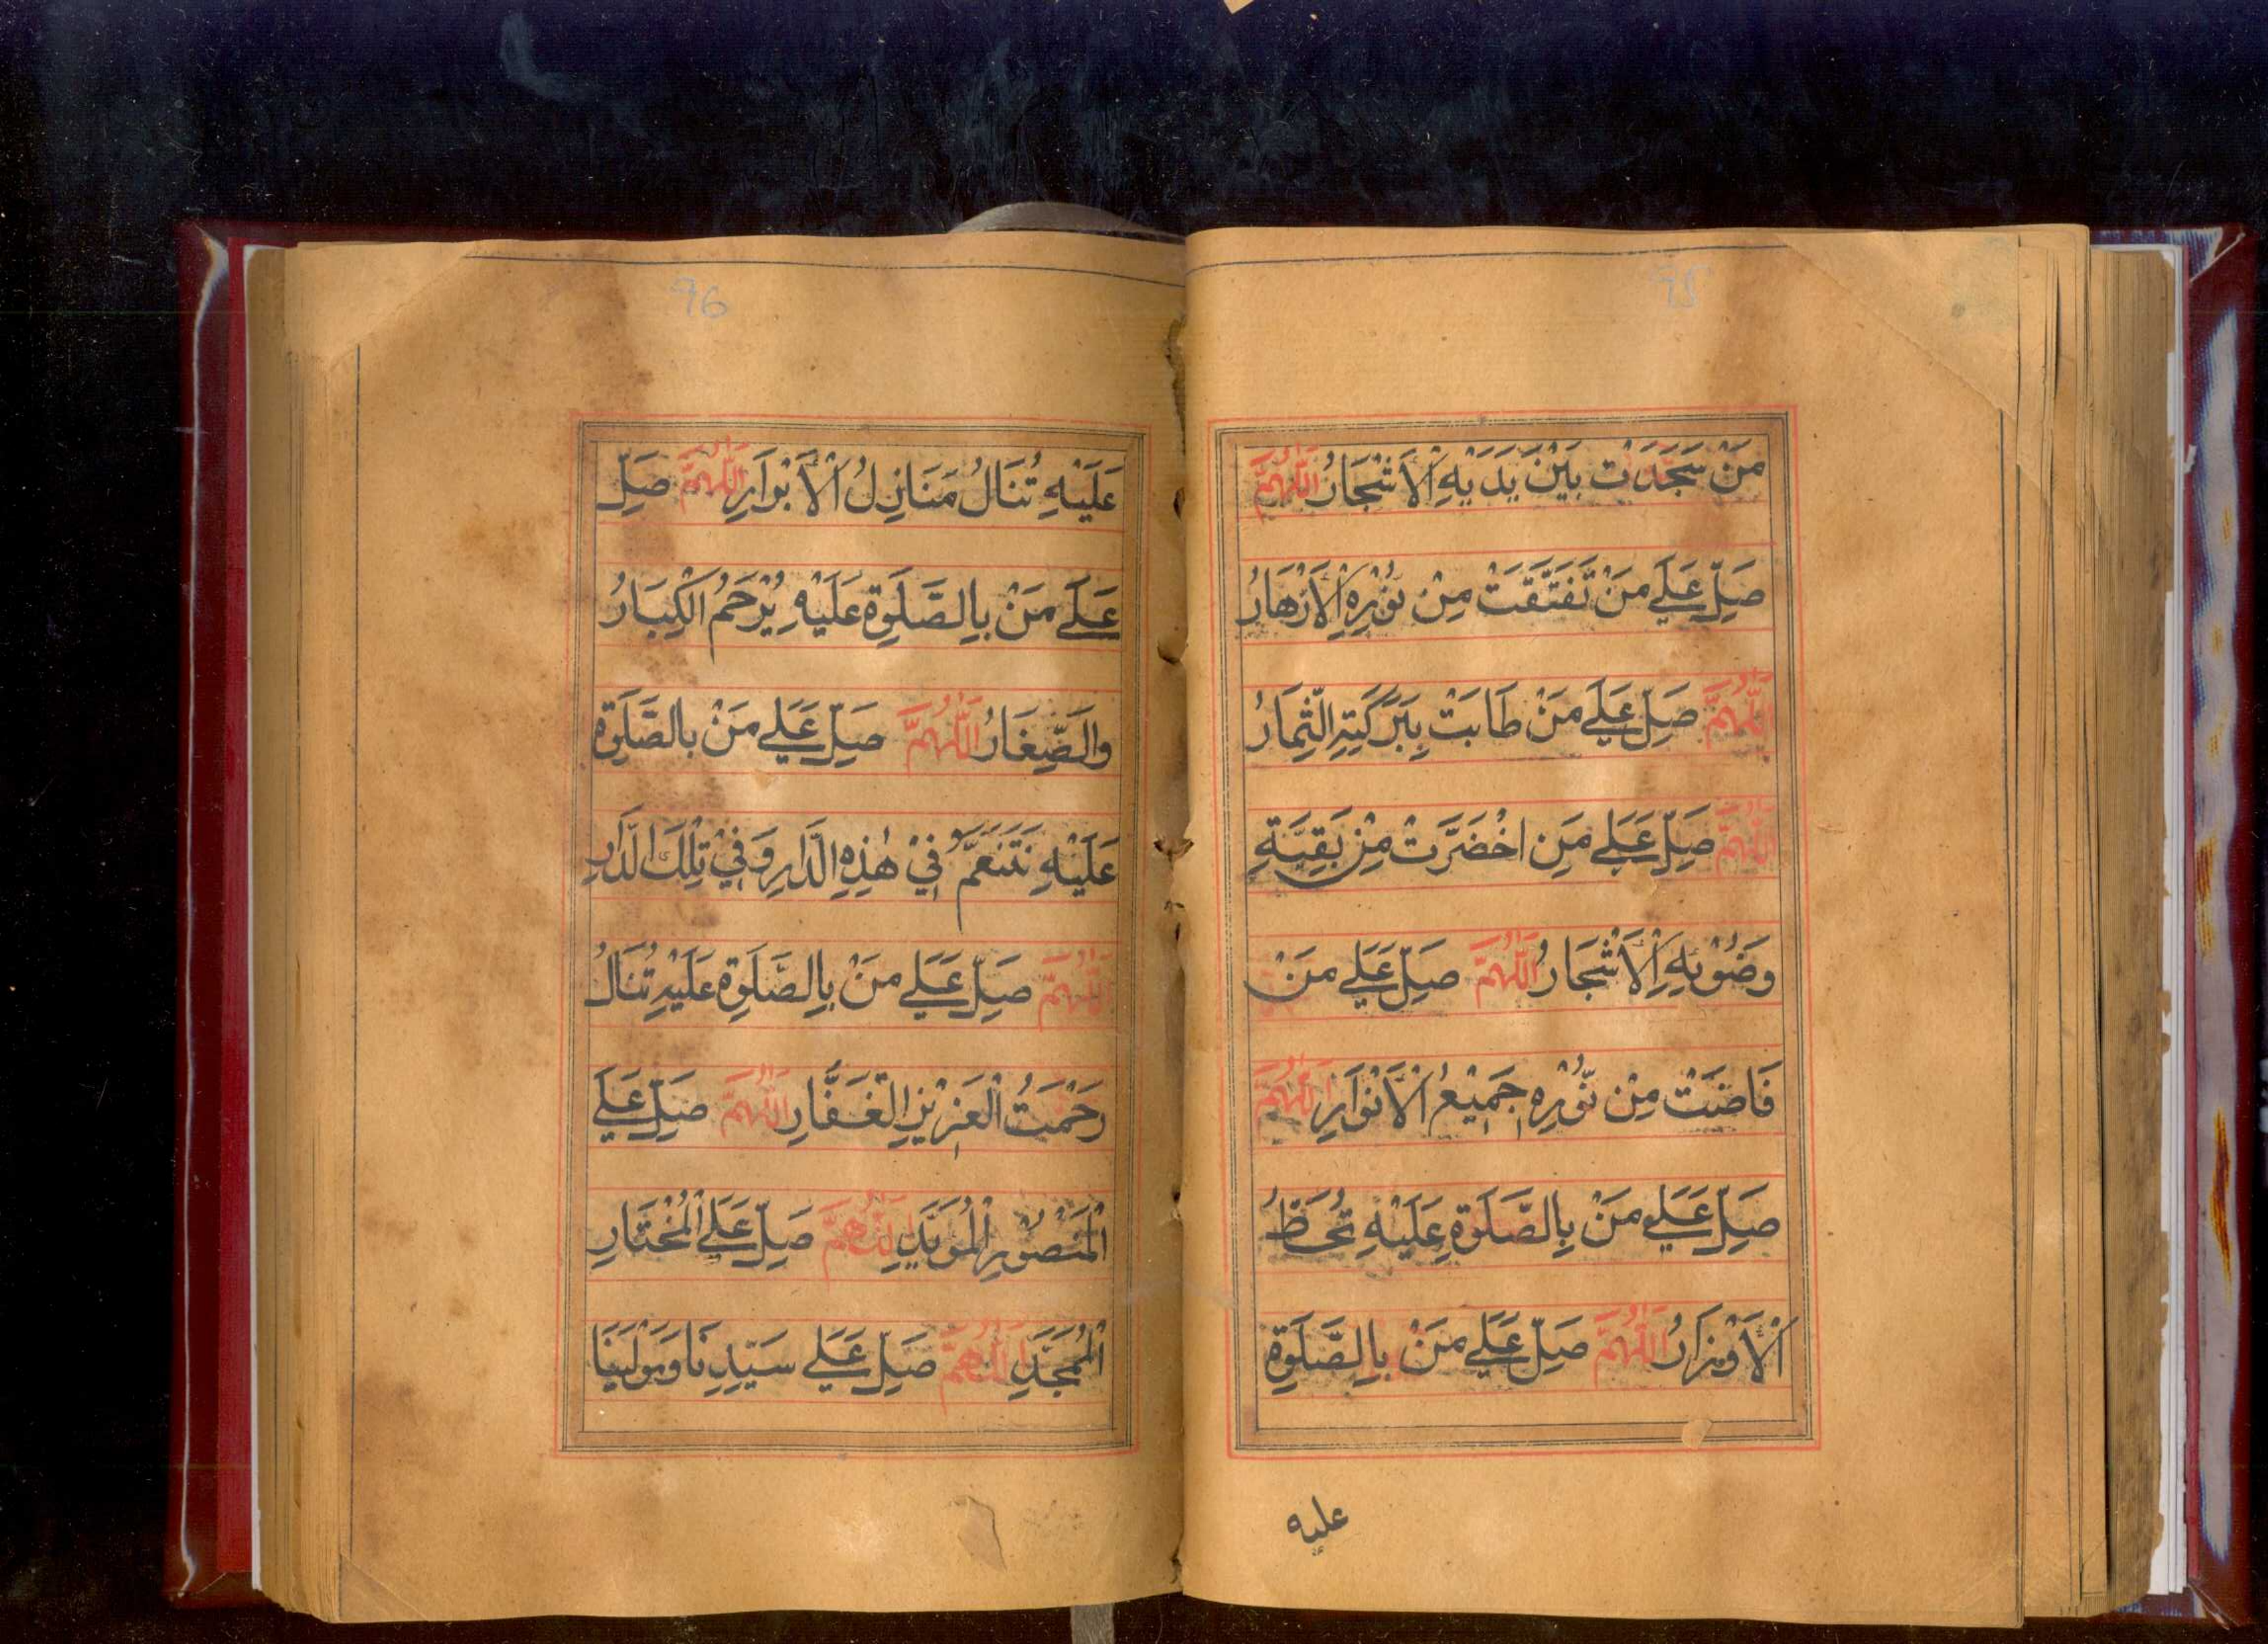 75
مَنْ سَجَدَتْ بَيْنَ يَدَيْهِ الْاَشْجَارُ اَللّٰهُمَّ
صَلِّ عَلَے مَنْ تَفَتَّقَتْ مِنْ نُوْرِهِ الْاَزْهَارُ
اَللّٰهُمَّ صَلِّ عَلَے مَنْ طَابَتْ بِبَرَكَتِهِ الثِّمَارُ
اَللّٰهُمَّ صَلِّ عَلَے مَنِ اخْضَرَّتْ مِنْ بَقِيَّةِ
وَضُوْئِهِ الْاَشْجَارُ اَللّٰهُمَّ صَلِّ عَلَے مَنْ
فَاضَتْ مِنْ نُّوْرِهٖ جَمِيْعُ الْاَنْوَارِ اَللّٰهُمَّ
صَلِّ عَلَے مَنْ بِالصَّلَوةِ عَلَيْهِ تُحَطُّ
الْاَوْزَارُ اَللّٰهُمَّ صَلِّ عَلَے مَنْ بِالصَّلَوةِ
عليه
96
عَلَيْهِ تُنَالُ مَنَازِلُ الْاَبْرَارِ اَللّٰهُمَّ صَلِّ
عَلَے مَنْ بِالصَّلَوةِ عَلَيْهِ يُرْحَمُ الْكِبَارُ
وَالصِّغَارُ اَللّٰهُمَّ صَلِّ عَلَے مَنْ بِالصَّلَوةِ
عَلَيْهِ نَتَنَعَّمُ فِيْ هٰذِهِ الدَّارِ وَفِيْ تِلْكَ الدَّارِ
اَللّٰهُمَّ صَلِّ عَلَے مَنْ بِالصَّلَوةِ عَلَيْهِ تُنَالُ
رَحْمَتُ الْعَزِيْزِ الْغَفَّارِ اَللّٰهُمَّ صَلِّ عَلَے
الْمَنْصُوْرِ الْمُوَيَّدِ اَللّٰهُمَّ صَلِّ عَلَے الْمُخْتَارِ
الْمُمَجَّدِ اَللّٰهُمَّ صَلِّ عَلَے سَيِّدِنَا وَمَوْلٰينَا